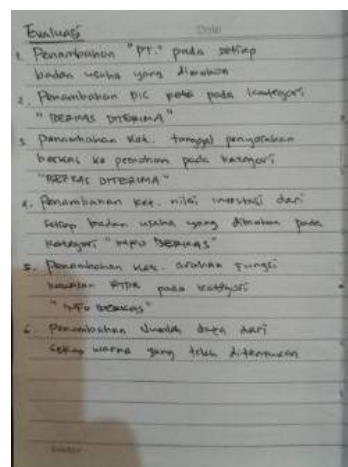 Evaluasi
1. Penambahan "PT." pada setiap
badan usaha yang dimohon
2. Penambahan PIC peta pada kategori
"BERKAS DITERIMA"
3. Penambahan Ket. tanggal penyerahan
berkas ke pemohon pada kategori
"BERKAS DITERIMA"
4. Penambahan Ket. nilai investasi dari
setiap badan usaha yang dimohon pada
kategori "INFO BERKAS"
5. Penambahan Ket. arahan fungsi
kawasan RTDR pada kategori
"INFO BERKAS"
6. Penambahan Jumlah data dari
setiap warna yang telah ditentukan